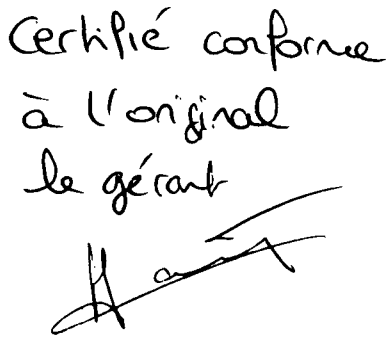 Certifié conforme
à l'original
le gérant